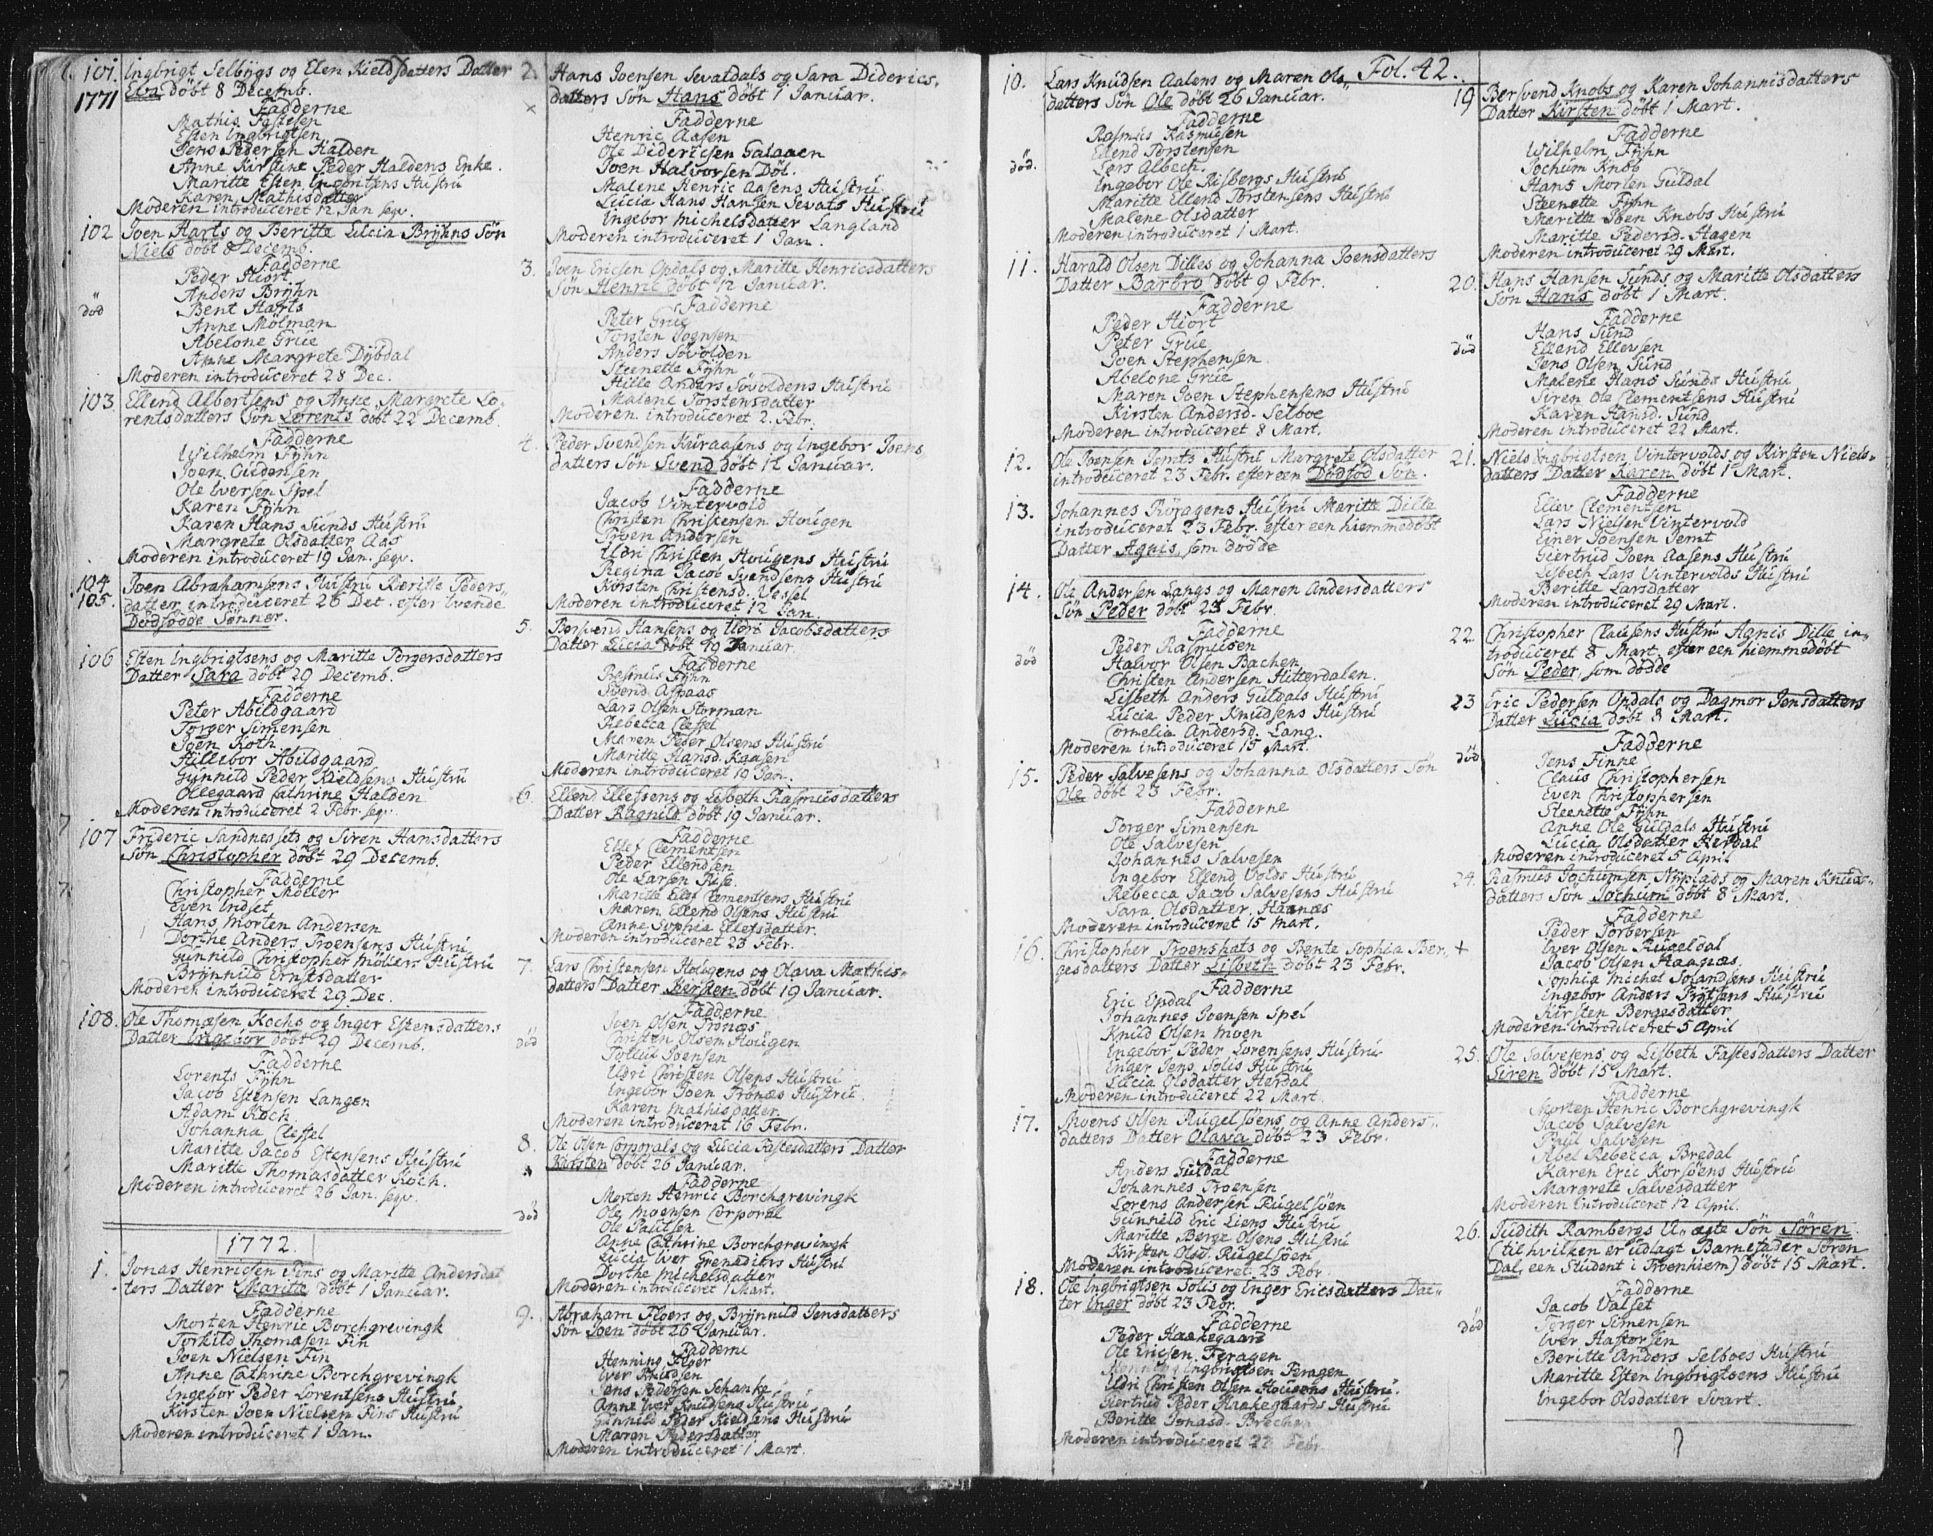 101. Ingbrigt Selbygs og Elen Kieldsdatters Datter
1771 Elen döbt 8 Decemb.
Fadderne
Mathis Fastesen
Esten Ingbrigtsen
Jens Pedersen Halden
Anne Kirstine Peder Haldens Enke.
Maritte Esten Ingbritsens Hustru
Karen Mathisdatter
Moderen introduceret 12 Jan seqv.
102 Joen Harts og Beritte Lucia Bryhns Søn
Niels döbt 8 Decemb.
Fadderne
Peder Hiort
Anders Bryhn
död Bent Harts
Anne Mölman
Abelone Grüe
Anne Margrete Dybdal
Moderen introduceret 28 Dec.
103 Ellend Albertsens og Anne Margrete Lo-
rentsdatters Søn Lorents döbt 22 Decemb.
Fadderne
Wilhelm Fyhn
Joen Gudensen
Ole Iversen Spel
Karen Fyhn
Karen Hans Sunds Hustru
Margrete Olsdatter Aas
Moderen introduceret 19 Jan. seqv.
104 Joen Abrahamsens Hustru Beritte Peders-
105. datter introduceret 26 Dec. efter tvende
Dödfödde Sønner.
106 Esten Ingbrigtsens og Maritte Torgersdatters
Datter Sara döbt 29 Decemb.
Fadderne
Peter Abildgaard
Torger Simensen
Joen Koth
Hillebor Abildgaard
Gunnild Peder Kieldsens Hustru
Ollegaard Cathrine Halden
Moderen introduceret 2 Febr. seqv.
107 Frideric Sandnessets og Siren Hansdatters
Søn Christopher döbt 29 Decemb.
Fadderne
Christopher Möller
Even Indset
Hans Morten Andersen
Dorthe Anders Troensens Hustru
Gunnild Christopher Möllers Hustru
Brynnild Ernstsdatter
Moderen introduceret 29 Dec.
108. Ole Thomæsen Kochs og Inger Estensdatters
Datter Ingebor döbt 29 Decemb.
Fadderne
Lorents Fyhn
Jacob Estensen Langen
Adam Koch
Johanna Clessel
Maritte Jacob Estensens Hustru
Maritte Thomasdatter Koch.
Moderen introduceret 26 Jan. seqv.
1772.
1. Jonas Henricsen Fins og Maritte Andersdat
ters Datter Maritte döbt 1 Januar.
Fadderne
Morten Henric Borchgrevingk
Torkild Thomæsen Fin
Joen Nielsen Fin
Anne Cathrine Borchgrevingk
Ingebor Peder Lorentsens Hustru
Kirsten Joen Nielsen Fins Hustru
Moderen introduceret 1 Jan.
2. Hans Joensen Sevatdals og Sara Diderics-
datters Søn Hans döbt 1 Januar.
Fadderne
Henric Aasen
Ole Didericsen Galaaen
Joen Halvorsen Döl.
Malene Henric Aasens Hustru
Lucia Hans Hansen Sevats Hustru
Ingebor Michelsdatter Langland
Moderen introduceret 1 Jan.
3. Joen Ericsen Opdals og Maritte Henricsdatters
Søn Henric döbt 12 Januar.
Fadderne
Peter Grüe
Torsten Joensen
Anders Søvolden
Steenette Fyhn
Hille Anders Søvoldens Hustru
Malene Torstensdatter
Moderen introduceret 2. Febr.
4. Peder Svendsen Kuraasens og Ingebor Joens
datters Søn Svend döbt 12 Januar.
Fadderne
Jacob Vintervold
Christen Christensen Hougen
Troen Andersen
Udri Christen Hougens Hustru
Regina Jacob Svendsens Hustru
Kirsten Christensd. Vessel
Moderen introduceret 12 Jan.
5. Bersvend Hansens og Udri Jacobsdatters
Datter Lucia döbt 19 Januar.
Fadderne
Rasmus Fyhn
Svend Aspaas
Lars Olsen Storman
Rebecca Clessel
Maren Peder Olsens Hustru
Maritte Hansd. Kaasen
Moderen introduceret 19 Jan.
6. Ellend Ellefsens og Lisbeth Rasmusdatters
Datter Ragnild döbt 19 Januar.
Fadderne
Ellef Clementsen
Peder Ellendsen
Ole Larsen Ruse.
Maritte Ellef Clementsens Hustru
Maren Ellend Olsens Hustru
Anne Sophia Ellefsdatter.
Moderen introduceret 23 Febr.
7. Lars Christensen Hougens og Olava Mathis-
datters Datter Kersten döbt 19 Januar.
Fadderne
Joen Olsen Tronæs
död Christen Olsen Hougen
Tollev Joensen
Udri Christen Olsens Hustru
Ingebor Joen Tronæs Hustru
Karen Mathisdatter
Moderen introduceret 16 Febr.
8. Ole Olsen Corporals og Lucia Fastesdatters Datter
Kirsten döbt 26 Januar.
Fadderne
Morten Henric Borchgrevingk
död Ole Moensen Corporal
Ole Paulsen
Anne Cathrine Borchgrevingk
Lucia Iver Grenadiers Hustru
Dorthe Michelsdatter
Moderen introduceret 1 Mart.
9. Abraham Floers og Brynnild Jensdatters
Søn Joen döbt 26 Januar.
Fadderne
Henning Floer
Iver Knudsen
Jens Pedersen Schanke
Anne Iver Knudsens Hustru
Gunnild Peder Kieldsens Hustru
Maren Pedersdatter
Moderen introduceret 1 Mart.
Fol. 42.
10. Lars Knudsen Aalens og Maren Ols-
datters Søn Ole döbt 26 Januar.
Fadderne
Rasmus Rasmusen
Ellend Torstensen
död. Lars Albech
Ingebor Ole Risbergs Hustru
Maritte Ellend Torstensens Hustru
Malene Olsdatter
Moderen introduceret 1 Mart.
11. Harald Olsen Dilles og Johanna Joensdatters
Datter Barbro döbt 9 Febr.
Fadderne
Peder Hiort
Peter Grüe
Joen Stephensen
Abelone Grüe
Maren Joen Stephensens Hustru
Kirsten Andersd. Selboe
Moderen introduceret 8 Mart.
12. Ole Joensen Jemts Hustru Margrete Olsdatter
introduceret 23 Febr. efter een Dödfod Søn.
13. Johannes Röragens Hustru Maritte Dille
introduceret 23 Febr. efter een hiemmedöbt
Datter Agnis, som dödde
14. Ole Andersen Langs og Maren Andersdatters
Søn Peder döbt 23 Febr.
Fadderne
Peder Rasmusen
död Halvor Olsen Bachen
Christen Andersen Hitterdalen.
Lisbeth Anders Guldals Hustru
Lucia Peder Knudsens Hustru
Cornelia Andersd. Lang.
Moderen introduceret 15 Mart.
15. Peder Salvesens og Johanna Olsdatters Søn
Ole döbt 23 Febr.
Fadderne
Torger Simensen
Ole Salvesen
Johannes Salvesen
Ingebor Ellend Volds Hustru
Rebecca Jacob Salvesens Hustru
Sara Olsdatter Haanæs
Moderen introduceret 15 Mart.
16. Christopher Troenshats og Bente Sophia Ber-
gesdatters Datter Lisbeth döbt 23 Febr.
Fadderne
Eric Opdal
Johannes Joensen Spel
Knud Olsen Moen
Ingebor Peder Lorensens Hustru
Inger Jens Solis Hustru
Lucia Olsdatter Herdal
Moderen introduceret 22 Mart.
17. Moens Olsen Rugelsöens og Anne Anders-
datters Datter Olava döbt 23 Febr.
Fadderne
Anders Guldal
Johannes Troensen
Lorens Andersen Rugelsöen
Gunnild Eric Liens Hustru
Maritte Berge Olsens Hustru
Kirsten Olsd. Rugelsöen
Moderen introduceret 23 Febr.
18. Ole Ingbrigtsen Solis og Inger Ericsdatters Dat-
ter Inger döbt 23 Febr.
Fadderne
Peder Haakegaard
Ole Ericsen Feragen
Ingbrigtsen Feragen
Udri Christen Olsen Hougens Hustru.
Giertrud Peder Haakegaards Hustru
Beritte Jonasd.
Moderen introduceret 22 Febr.
19 Bersvend Knobs og Karen Johannisdatters
Datter Kirsten döbt 1 Mart.
Fadderne
Wilhelm Fyhn
Jochum Knob
Hans Morten Guldal
Steenette Fyhn
Maritte Joen Knobs Hustru
Maritte Pedersd. Hagen
Moderen introduceret 29 Mart.
20. Hans Hansen Sunds og Maritte Olsdatters
Søn Hans döbt 1 Mart.
Fadderne
Hans Sund
död Ellend Ellevsen
Jens Olsen Sund
Malene Hans Sunds Hustru
Siren Ole Clementsens Hustru
Karen Hansd. Sund
Moderen introduceret 22 Mart.
21. Niels Ingbrigtsen Vintervolds og Kirsten Niels-
datters Datter Karen döbt 1 Mart.
Fadderne
Ellev Clementsen
Lars Nielsen Vintervold
Einer Joensen Jemt
Giertrud Joen Aasens Hustru
Lisbeth Lars Vintervolds Hustru
Beritte Larsdatter
Moderen introduceret 29 Mart.
22. Christopher Clausens Hustru Agnis Dille in-
troduceret 8 Mart. efter een hiemmedöbt
Søn Peder, som dödde
23 Eric Pedersen Opdals og Dagmor Jensdatters
Datter Lucia döbt 8 Mart.
Fadderne
död Jens Finne
Claus Christophersen
Even Christophersen
Steenette Fyhn
Anne Ole Guldals Hustru
Lucia Olsdatter Herdal
Moderen introduceret 5 April
24. Rasmus Jochumsen Nyplads og Maren Knuds-
datters Søn Jochum döbt 8 Mart.
Fadderne
Peder Torbersen
+ Iver Olsen Rugeldal
Jacob Olsen Haanæs
Sophia Michel Jolandsens Hustru
Ingebor Anders Prytsens Hustru
Kirsten Bergesdatter
Moderen introduceret 5 April
25. Ole Salvesens og Lisbeth Fastesdatters Datter
Siren döbt 15 Mart.
Fadderne
Morten Henric Borchgrevingk
Jacob Salvesen
Paul Salvesen
Abel Rebecca Bredal
Karen Eric Korsöens Hustru
Margrete Salvesdatter
Moderen introduceret 12 April.
26. Judith Rambergs U-ægte Søn Søren
(til hvilken er udlagt Barnefader Søren
Dal, een Student i Troenhiem) döbt 15 Mart.
Fadderne
Jacob Valset
död Torger Simensen
Iver Hastorsen
Beritte Anders Selboes Hustru
Maritte Esten Ingbrigtsens Hustru
Ingebor Olsdatter Svart.